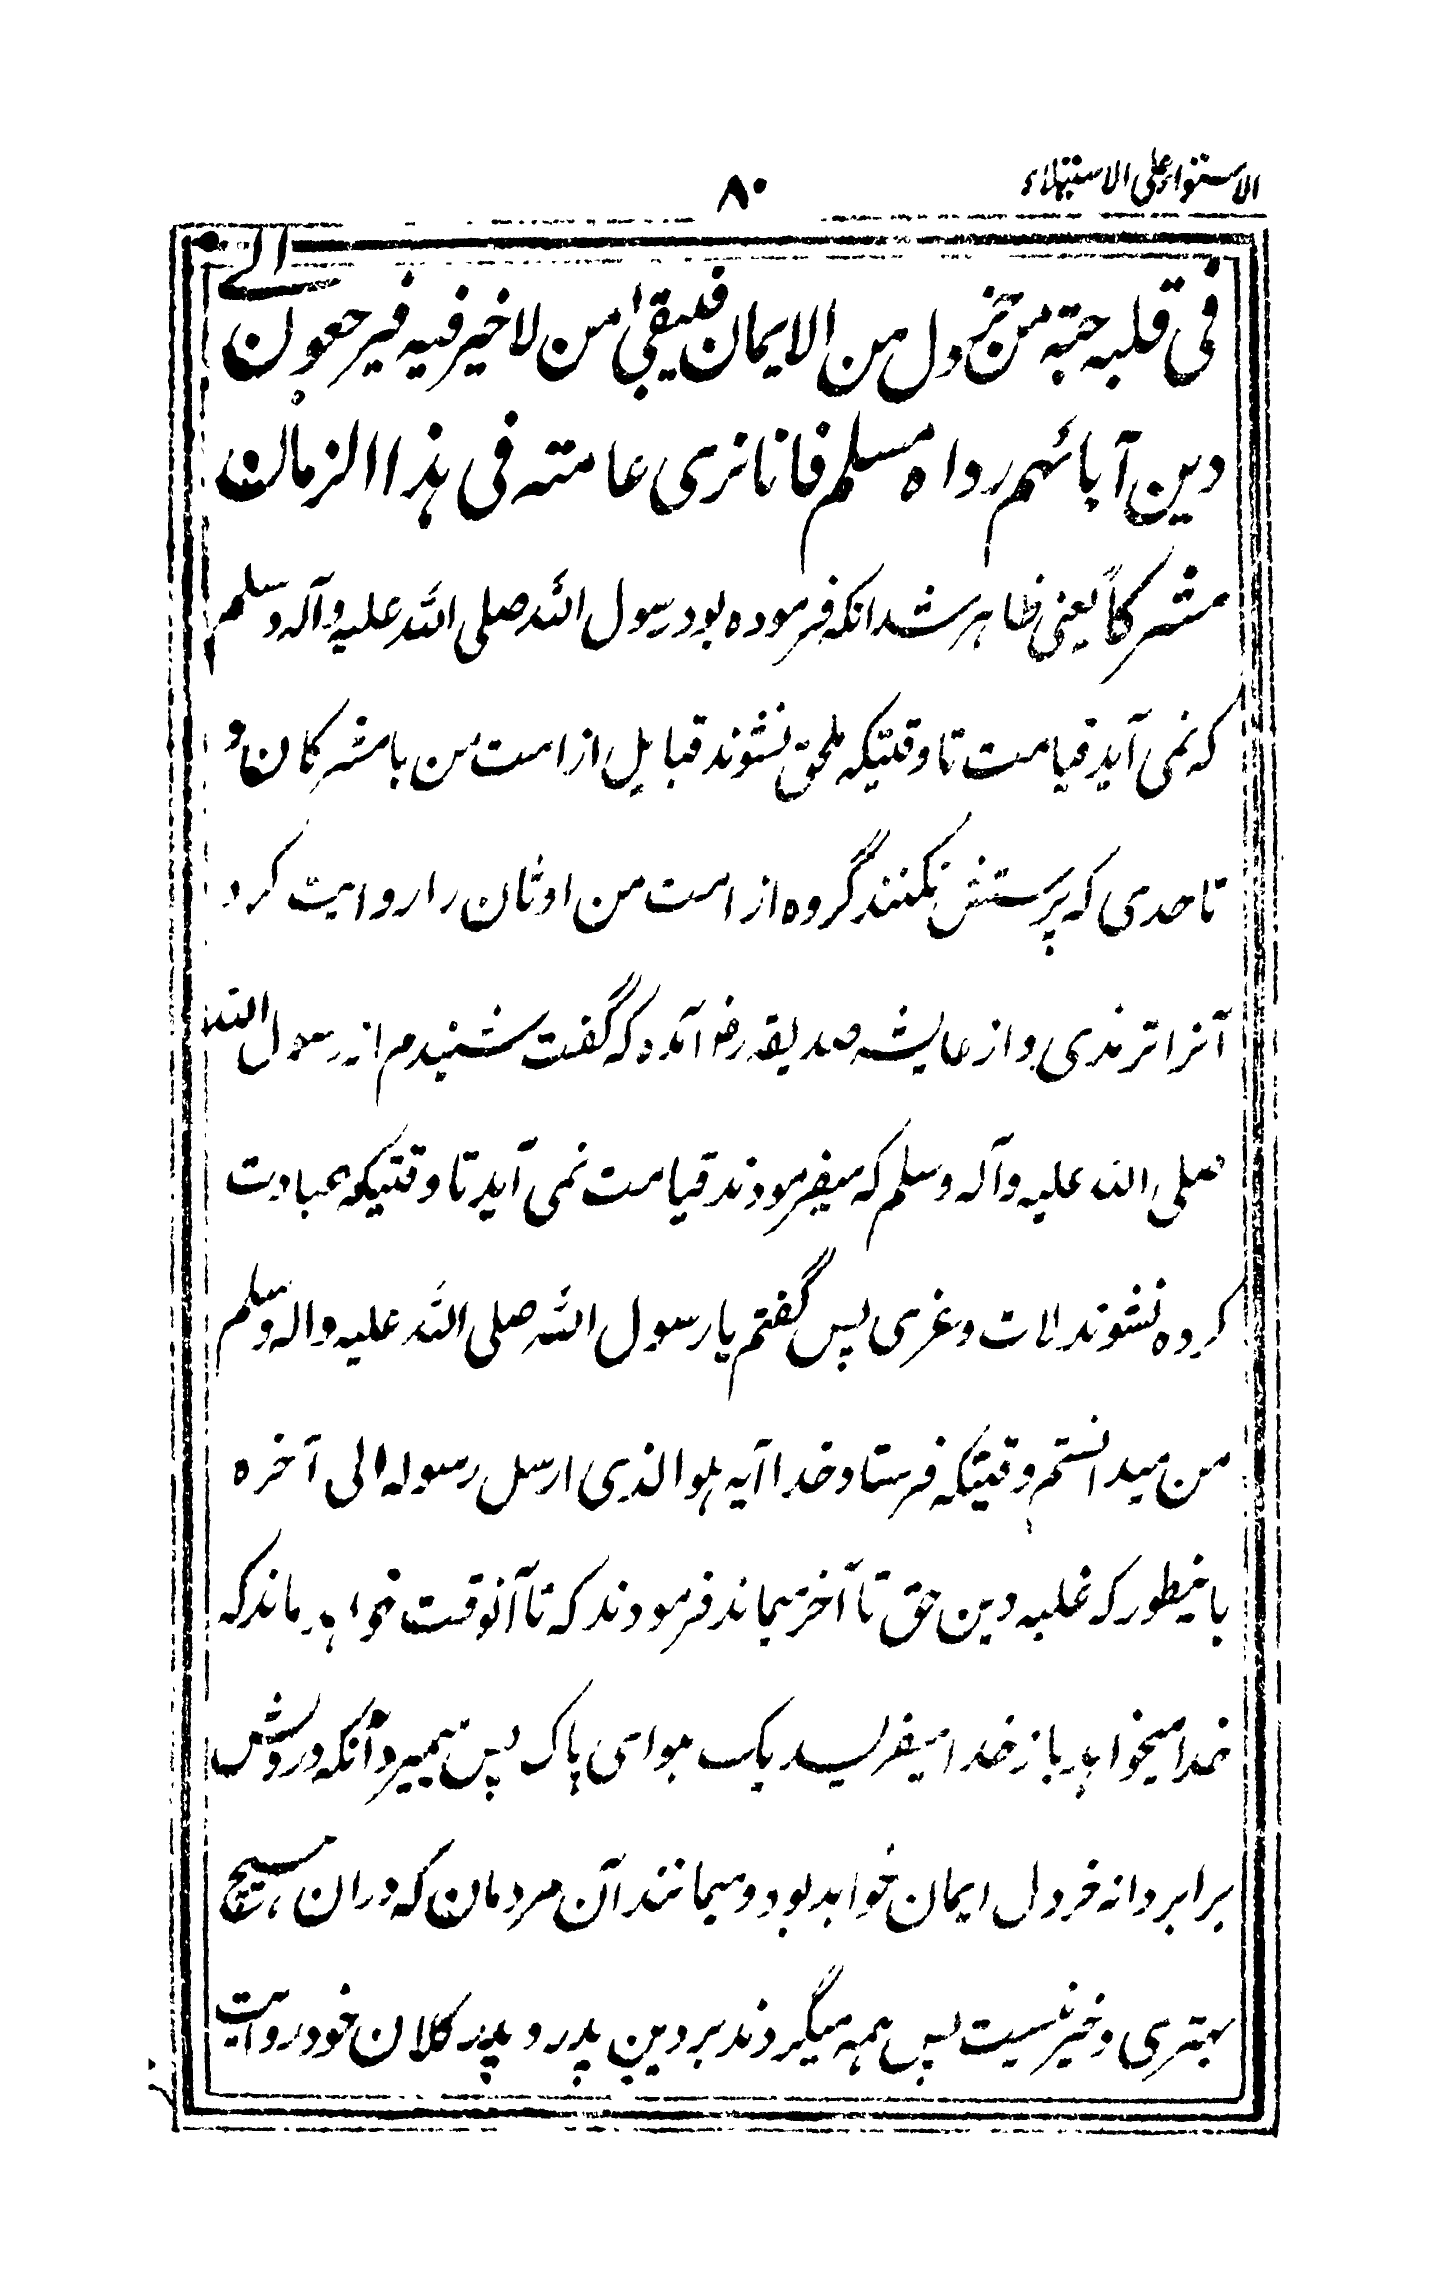 الاستواء علی الاستیلاء
۸۰
فی قلبه حبة من خردل من الایمان فیبقی من لاخیر فیه فیرجعون الی
دین آبائهم رواه مسلم فانا نری عامته فی هذا الزمان
مشرکاً یعنی ظاهر شد انکه فرموده بود رسول الله صلی الله علیه وآله وسلم
که نمی آید قیامت تا وقتیکه ملحق نشوند قبایل از امت من با مشرکان و
تا حدی که پرستش نکنند گروه از امت من اوثان را روایت کرد
آنرا ترمذی و از عایشه صدیقه رض آمده که گفت شنیدم از رسول الله
صلی الله علیه وآله وسلم که میفرمودند قیامت نمی آید تا وقتیکه عبادت
کرده نشوند لات و عزی پس گفتم یا رسول الله صلی الله علیه واله وسلم
من میدانستم وقتیکه فرستاد خدا آیه هو الذی ارسل رسوله الی آخره
باینطور که غلبه دین حق تا آخر میماند فرمودند که تا آنوقت خواهد ماند که
خدا میخواهد باز خدا میفرلسید یک هوای پاک پس بمیرد آنکه در ولش
برابر دانه خردل ایمان خواهد بود و میمانند آن مردمان که دران هیچ
بهتری و خیر نیست پس همه میگردند بر دین پدر و پدر کلان خود روایت